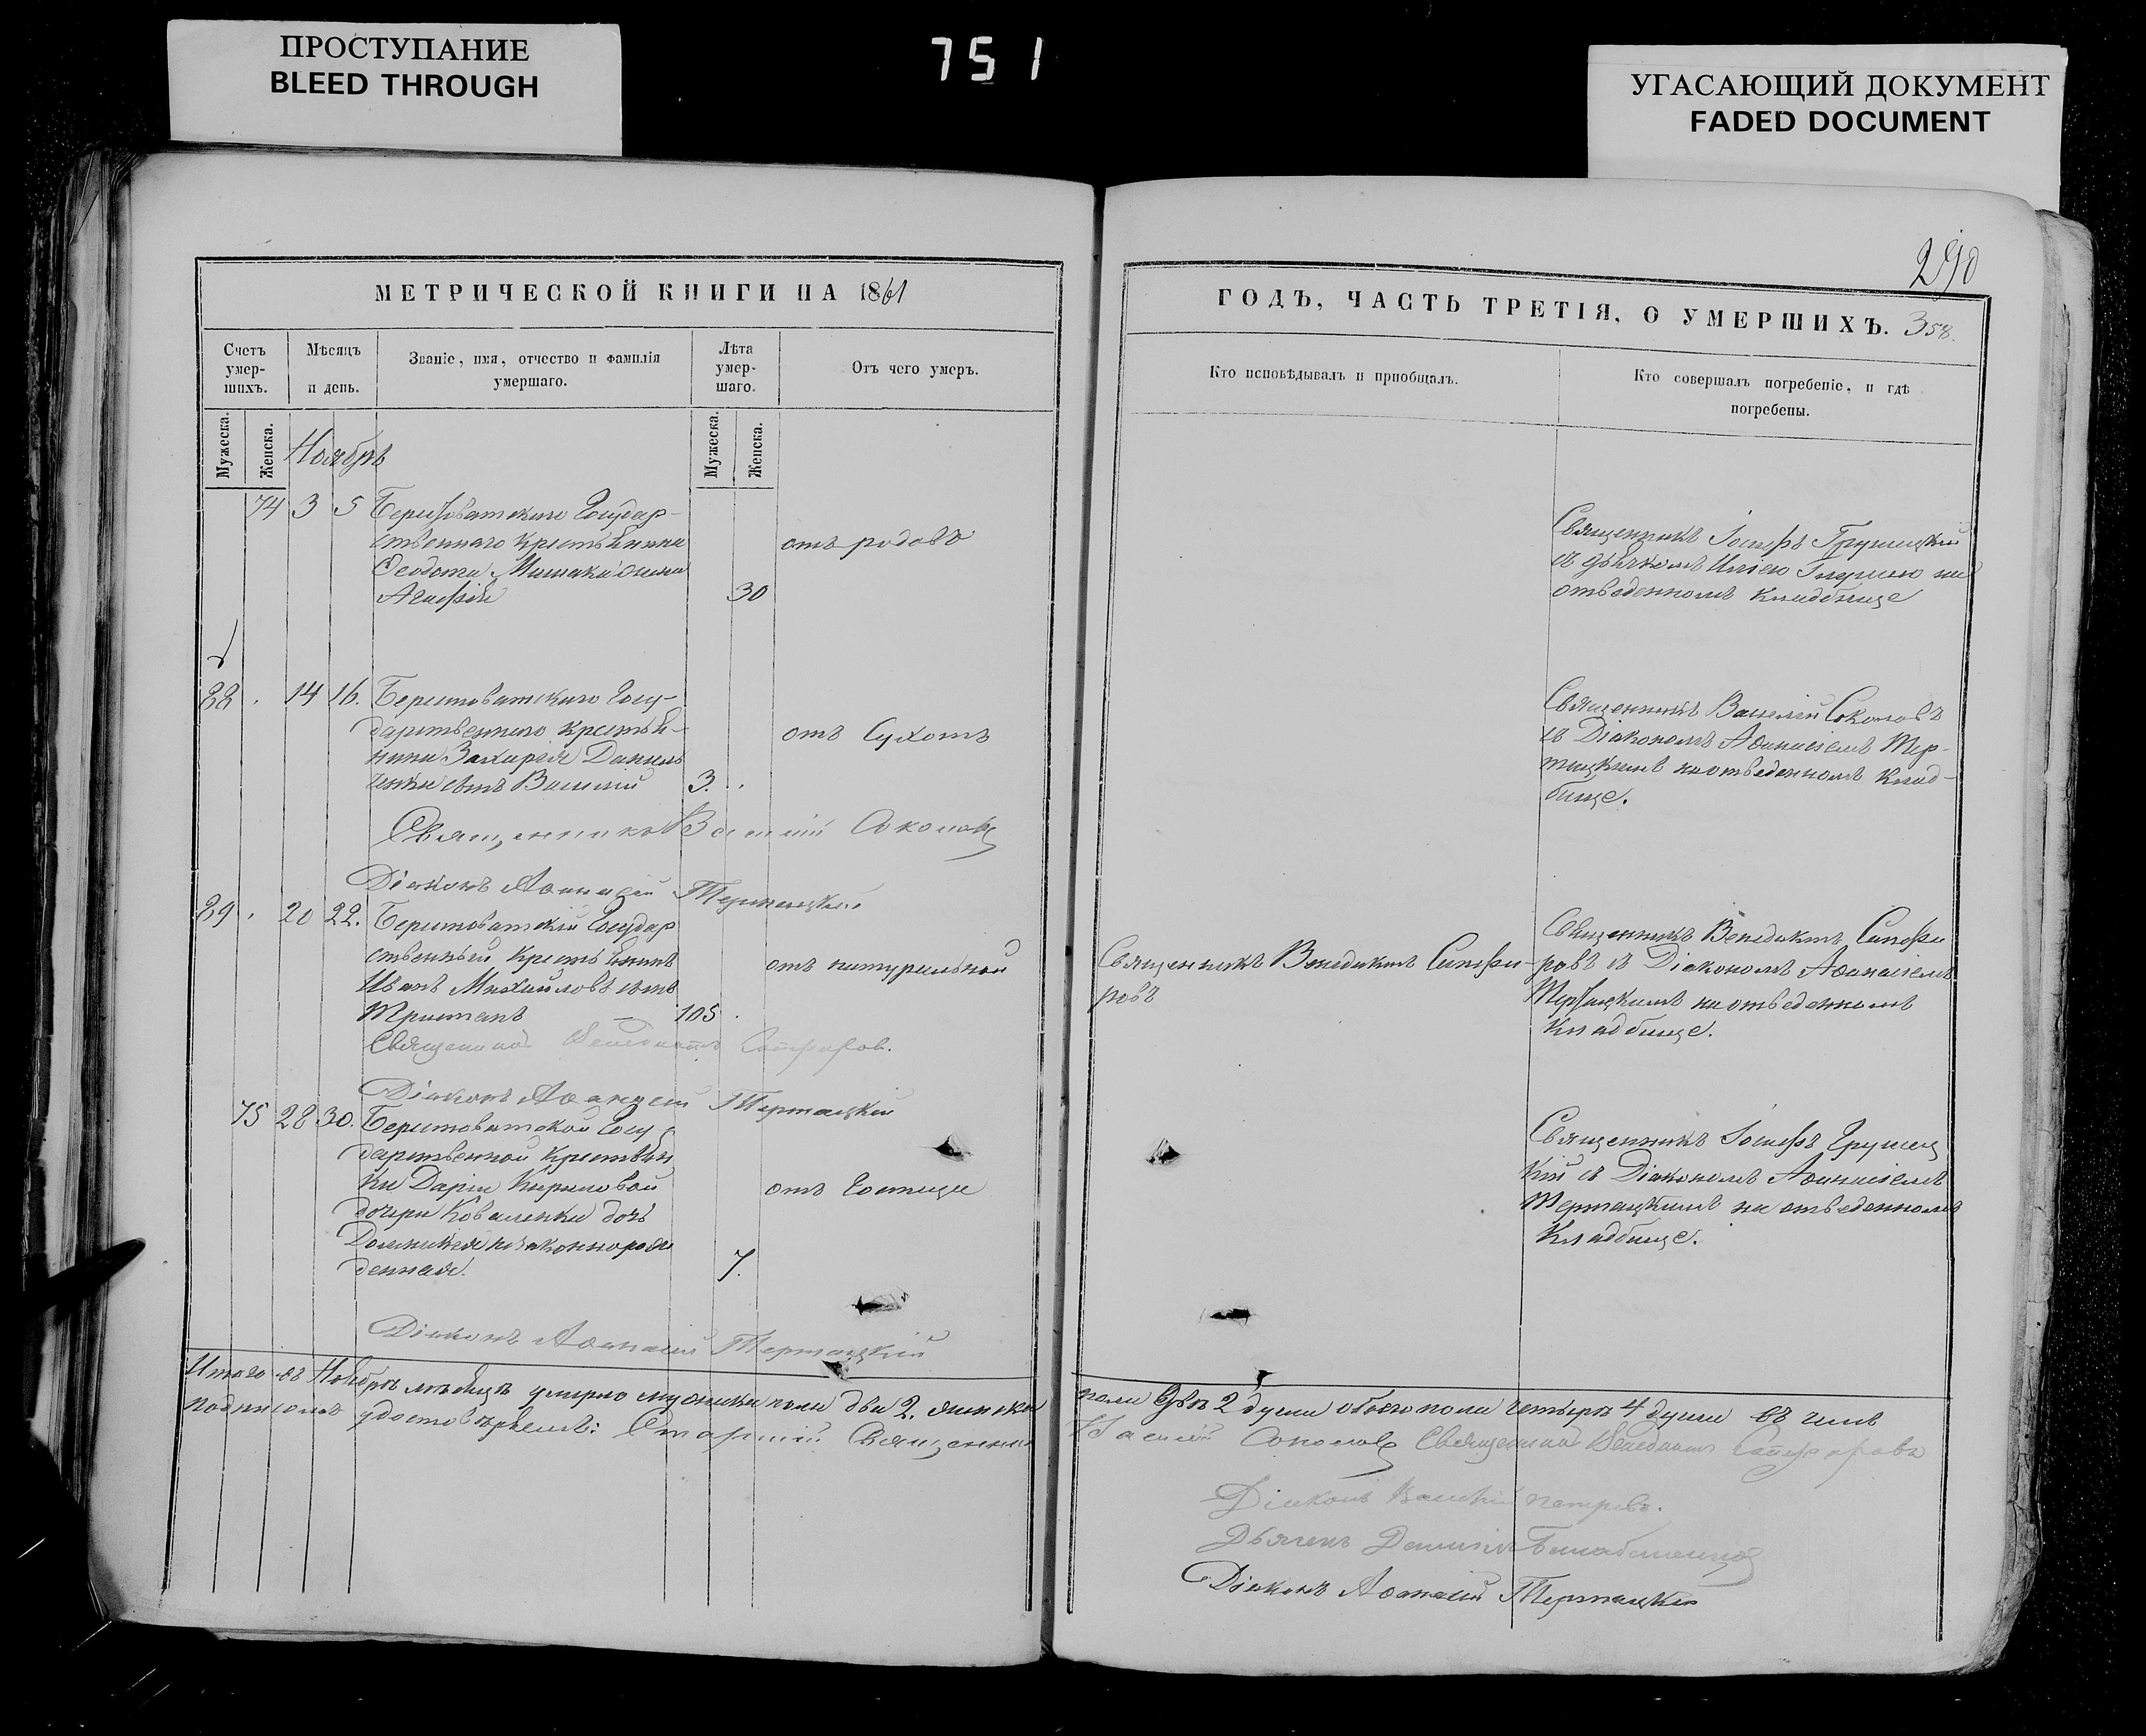 ПРОСТУПАНИЕ
BLEED THROUGH
751
УГАСАЮЩИЙ ДОКУМЕНТ
FADED DOCUMENT
290
МЕТРИЧЕСКОЙ КНИГИ НА 1861
ГОДЪ, ЧАСТЬ ТРЕТІЯ, О УМЕРШИХЪ. 358.
Счетъ умер-шихъ.
Мѣсяцъ и день.
Званіе, имя, отчество и фамилія умершаго.
Лѣта умер-шаго.
Отъ чего умеръ.
Кто исповѣдывалъ и пріобщалъ.
Кто совершалъ погребеніе, и гдѣ погребены.
Мужеска.
Женска.
Мужеска.
Женска.
Ноябрь
74 3 5 Государ-
ственнаго крестьянина
Ѳеодота жена
30
отъ родовъ
Священникъ Іосифъ Грушецкій
съ дьячкомъ на
отведенномъ кладбище
88 14 16. Берестоватскаго Госу-
дарственнаго крестья-
нина Захарія Данил
ченка сынъ Василій 3.
отъ Сухотъ
Священникъ Василій Соколовъ
съ Діакономъ Аѳанасіемъ Тер-
тацкимъ на отведенномъ клад-
бище.
Священникъ Василій Соколовъ
Діаконъ Аѳанасій Тертацкій
89 20 22. Берестоватскій Государ
ственный крестьянинъ
Иванъ Михайловъ сынъ
105
отъ натуральной
Священникъ Венедиктъ Сапфи-
ровъ
Священникъ Венедиктъ Сапфи
ровъ съ Діакономъ Аѳанасіемъ
Тертацкимъ на отведенномъ
кладбище.
Священникъ Венедиктъ Сапфировъ.
Діаконъ Аѳанасій Тертацкій
75 28 30. Берестоватской Госу
дарственной крестьян
ки Даріи Кириловой
дочери Коваленки дочь
незаконнорож
денная. 7.
отъ Гостеца
Священникъ Іосифъ Грушец
кій съ Діакономъ Аѳанасіемъ
Тертацкимъ на отведенномъ
кладбище.
Діаконъ Аѳанасій Тертацкій
Итого въ Ноябрѣ мѣсяцѣ умерло мужеска пола два 2. женска
пола двѣ 2 души обоего пола четыре 4 души въ чемъ
подписомъ удостовѣряемъ: Старшій Священникъ
Василій Соколовъ Священникъ Венедиктъ Сапфировъ
Діаконъ Василій Петровъ.
Дьячекъ
Діаконъ Аѳанасій Тертацкій